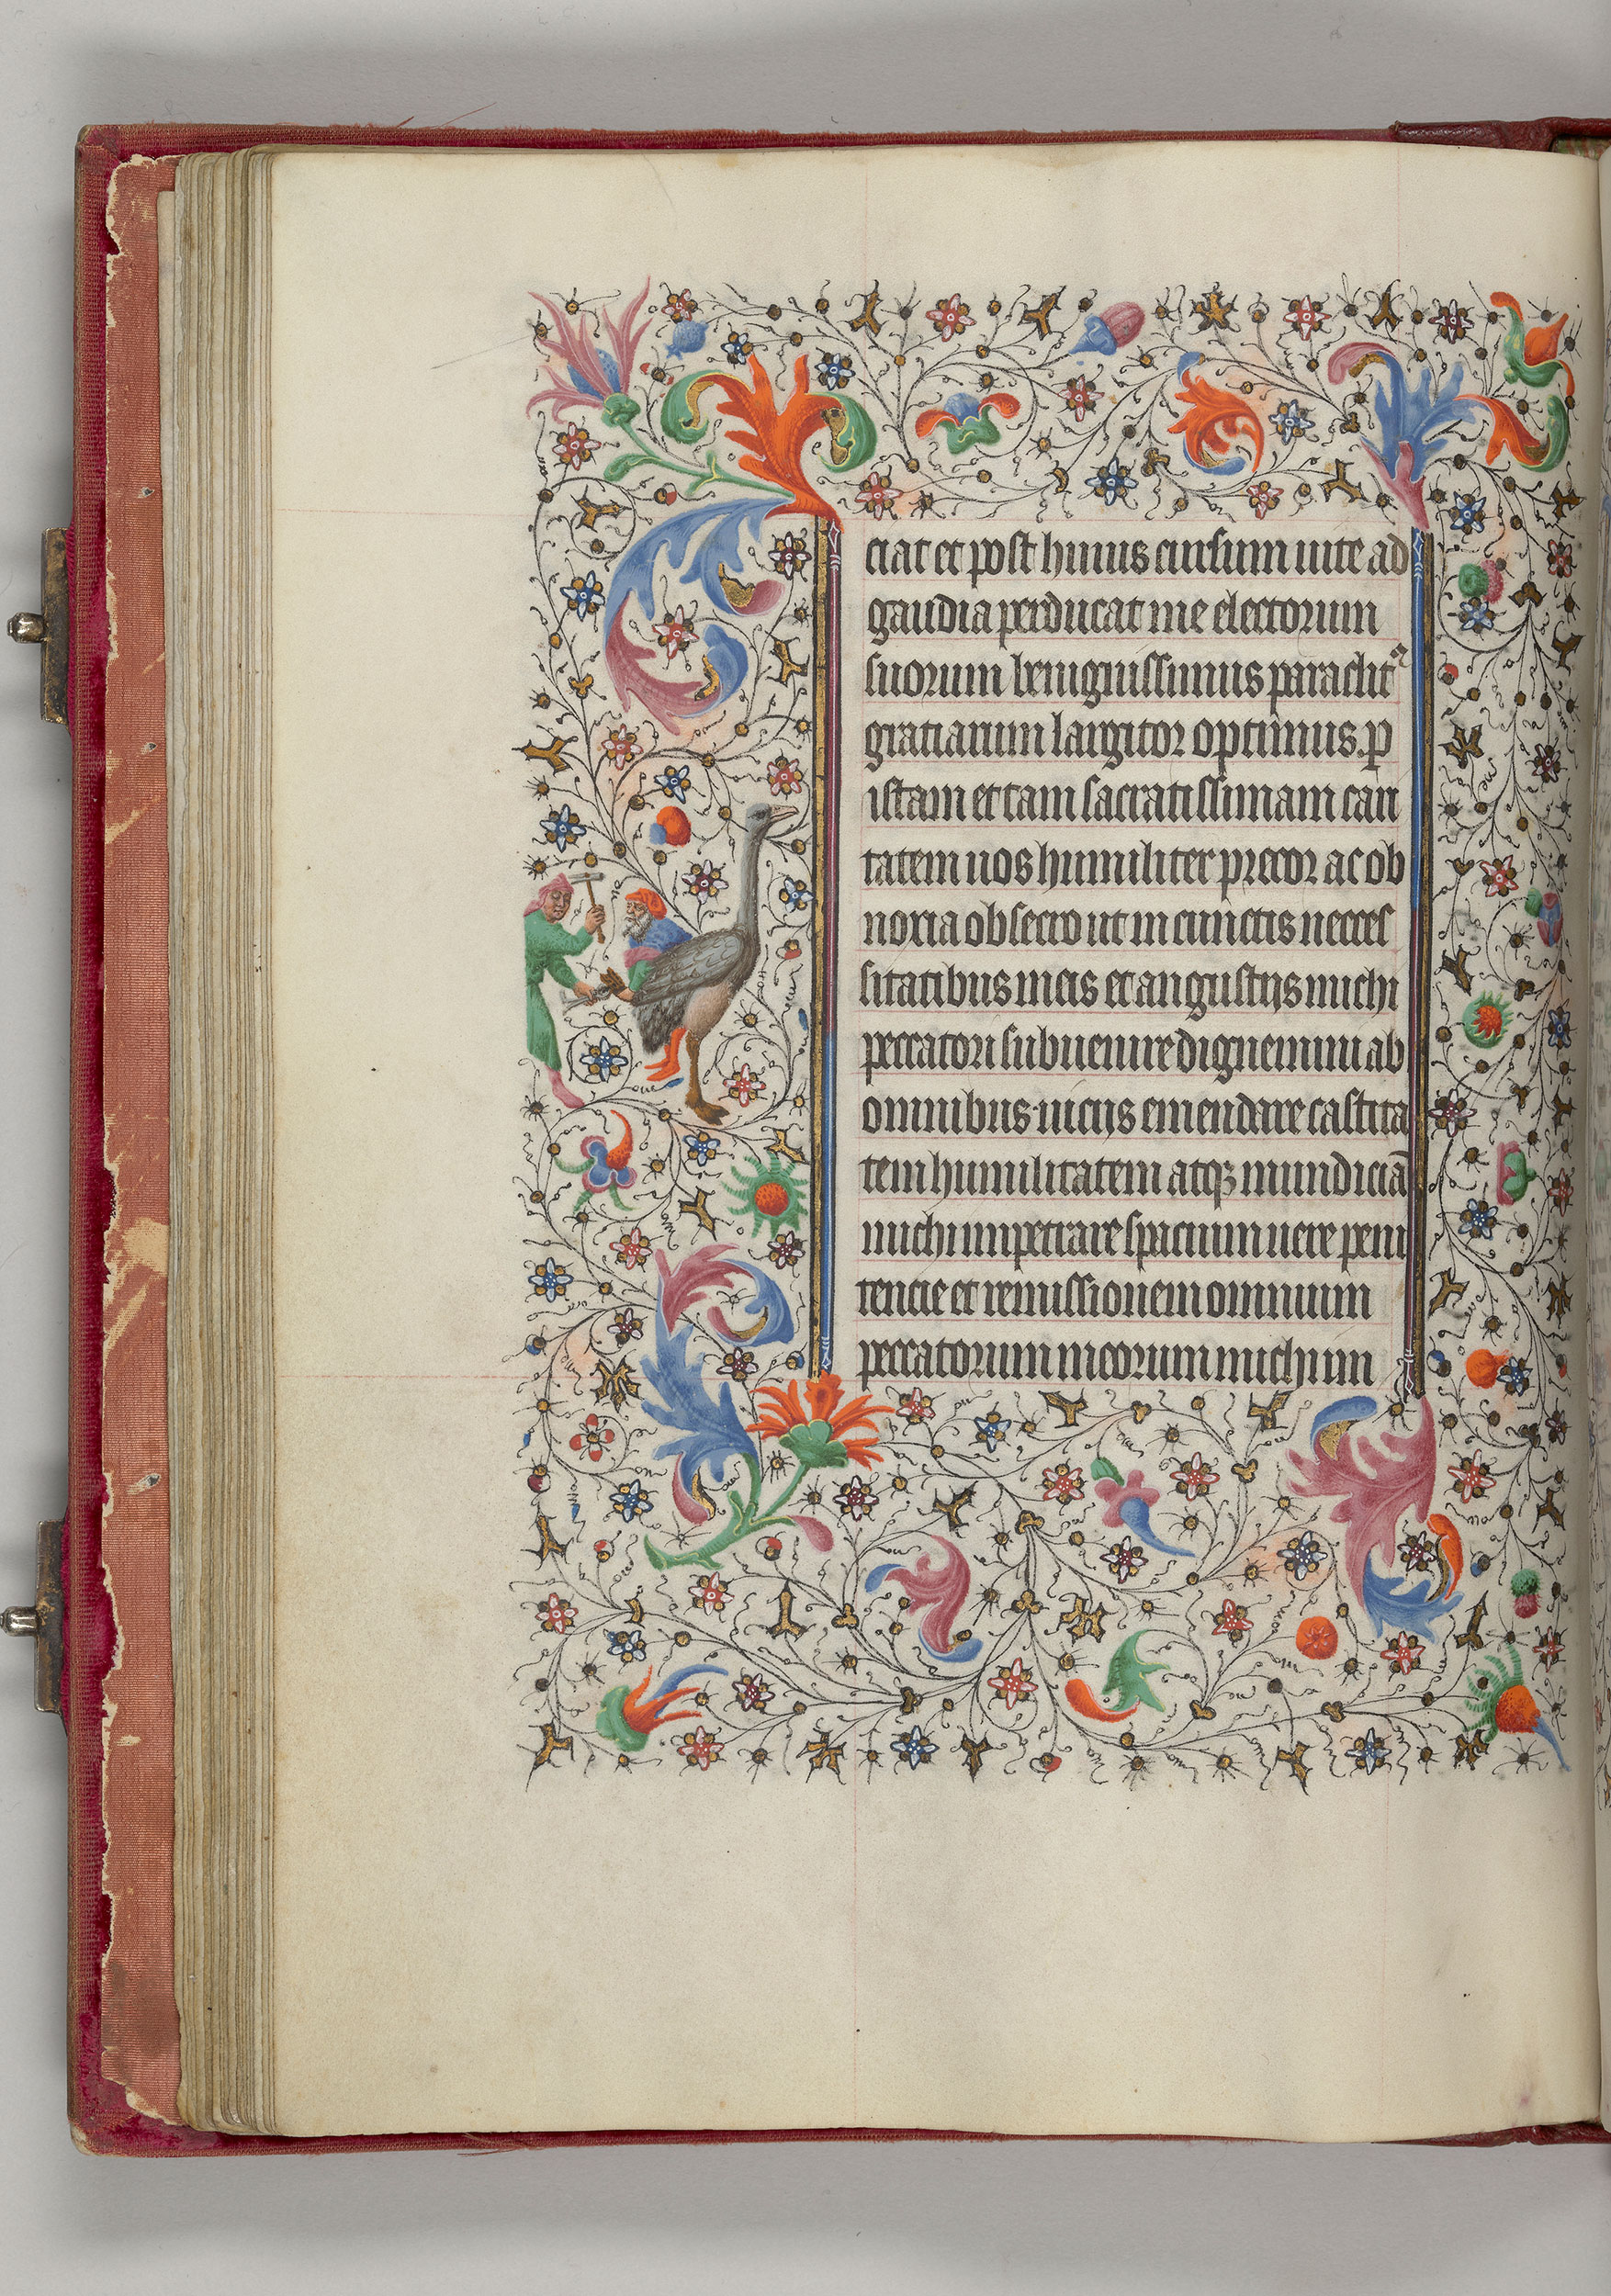 ciat et post huius cursum uite ad
gaudia perducat me electorum
suorum benignissimus paraclit⁹
gratiarum largitor optimus. ꝑ
istam et tam sacratissimam cari
tatem uos humiliter precor ac ob
noxia obsecro ut in cunctis neces
sitatibus meis et angustijs michi
peccatori subuenire dignemini ab
omnibus uicijs emendare castita
tem humilitatem atqꝫ mundiciā
michi impetrare spacium uere peni
tencie et remissionem omnium
peccatorum meorum michi im